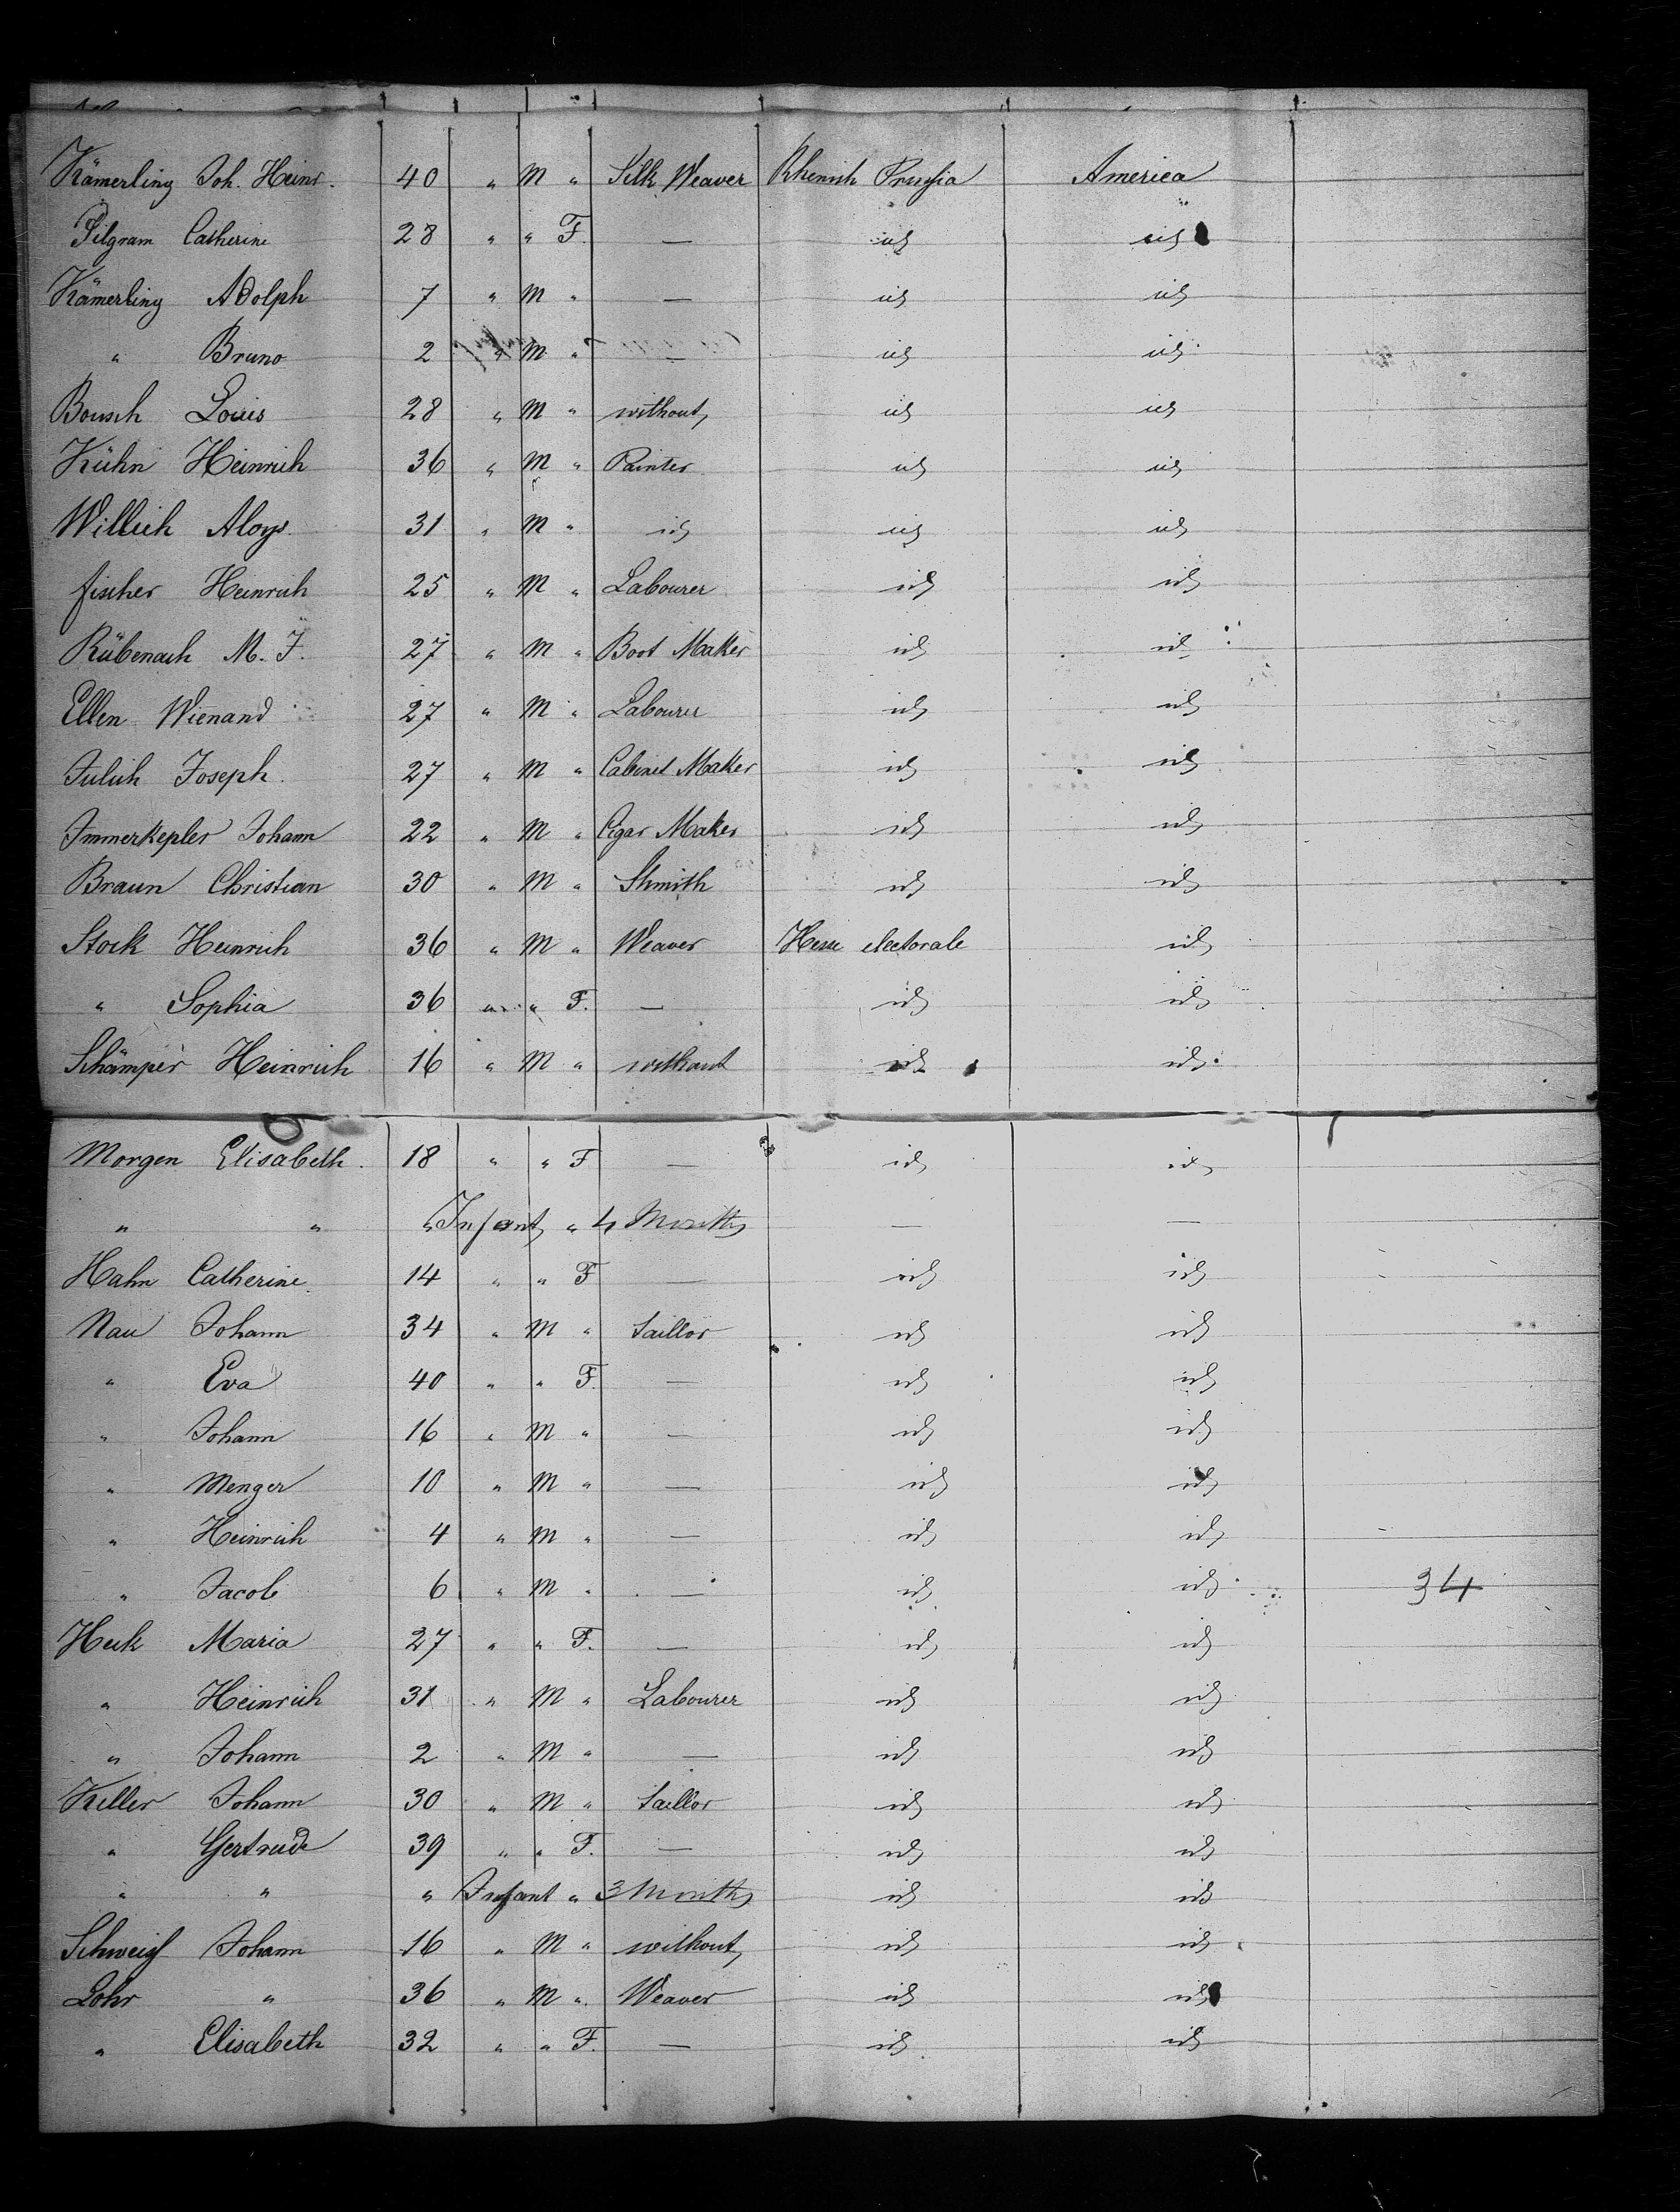 Kämerling Joh. Heinr. 40 " M " Silk Weaver Rhenish Prussia America
Pilgram Catherine 28 " " F. — id id
Kämerling Adolph 7 " M " — id id
" Bruno 2 " M " — id id
Bousch Louis 28 " M " without id id
Kühn Heinrich 36 " M " Painter id id
Willich Aloys. 31 " M " id id id
fischer Heinrich 25 " M " Labourer id id
Rübenach M. J. 27 " M " Boot Maker id id
Ellen Wienand 27 " M " Labourer id id
Julich Joseph. 27 " M " Cabinet Maker id id
Immerkepler Johann 22 " M " Cigar Maker id id
Braun Christian 30 " M " Shmith id id
Stock Heinrich 36 " M " Weaver Hesse electorale id
" Sophia 36 " " F. — id id
Schämper Heinrich 16 " M " without id id
Morgen Elisabeth. 18 " " F — id id
" " " Infant " 4 Months — —
Hahn Catherine 14 " " F — id id
Nau Johann 34 " M " Taillor id id
" Eva 40 " " F. — id id
" Johann 16 " M " — id id
" Menger 10 " M " — id id
" Heinrich 4 " M " — id id
" Jacob 6 " M " — id id 34
Heck Maria 27 " " F. — id id
" Heinrich 31 " M " Labourer id id
" Johann 2 " M " — id id
Keller Johann 30 " M " Taillor id id
" Gertrude 39 " " F. — id id
" " " Infant " 3 Months id id
Schweisf Johann 16 " M " without id id
Lohr " 36 " M " Weaver id id
" Elisabeth 32 " " F. — id id